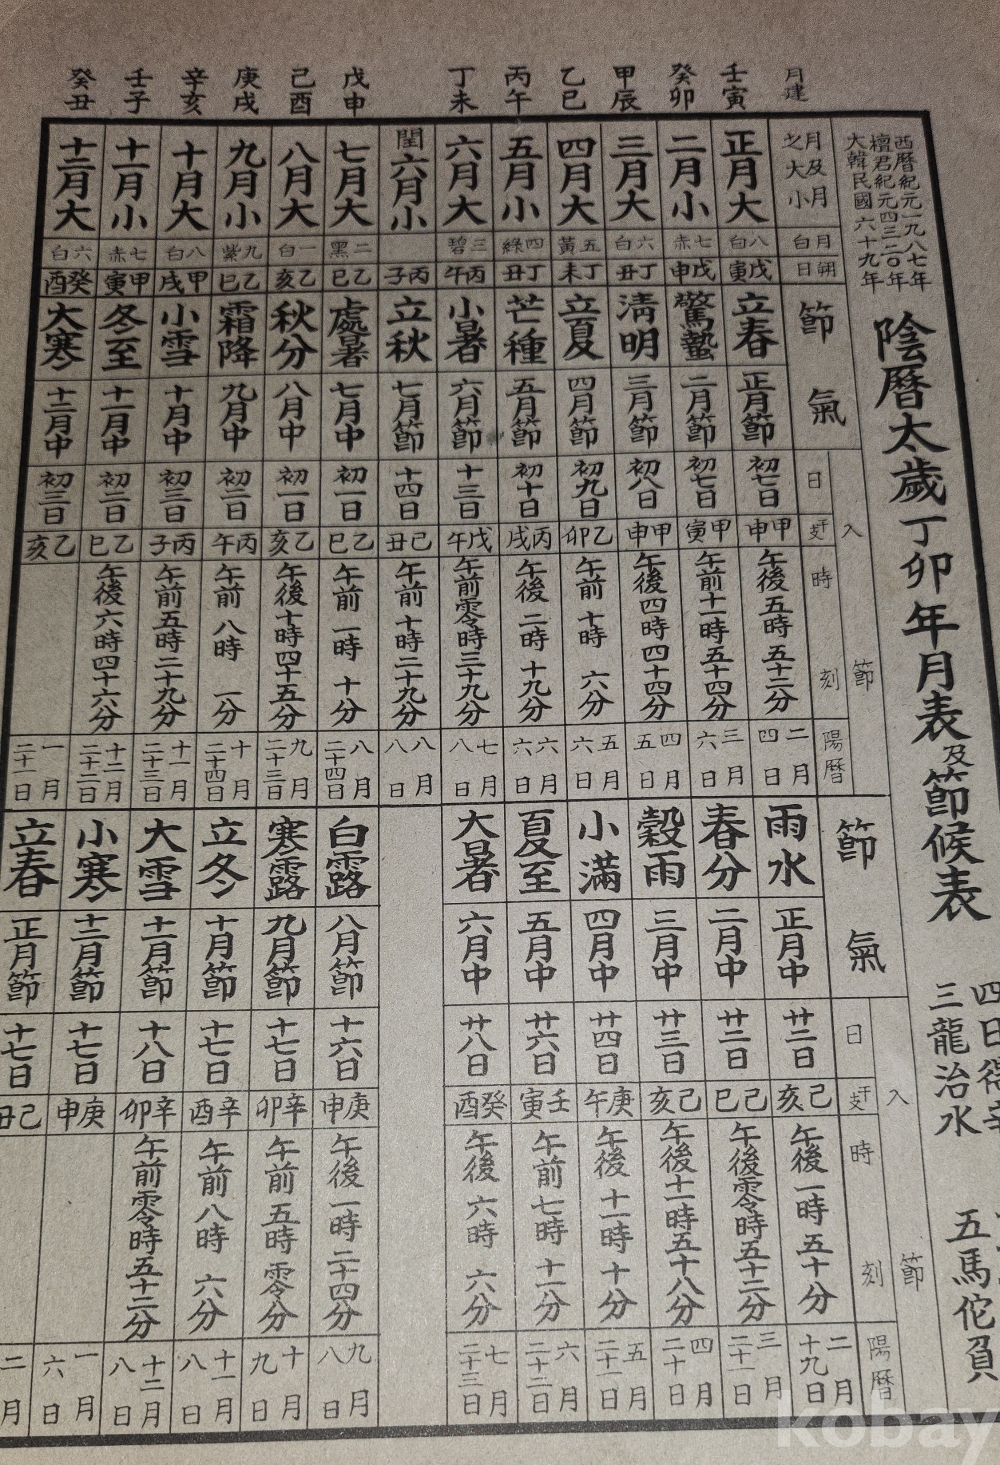 西曆紀元一九八七年
檀君紀元四三二〇年
大韓民國六十九年
陰曆太歲丁卯年月表及節候表
四日得辛
三龍治水
五馬佗負
月建 壬寅 癸卯 甲辰 乙巳 丙午 丁未 戊申 己酉 庚戌 辛亥 壬子 癸丑
月及月之大小 正月大 二月小 三月大 四月大 五月小 六月大 閏六月小 七月大 八月大 九月小 十月大 十一月小 十二月大
月白 八白 七赤 六白 五黃 四綠 三碧 二黑 一白 九紫 八白 七赤 六白
朔日 戊寅 戊申 丁丑 丁未 丁丑 丙午 丙子 乙巳 乙亥 乙巳 甲戌 甲寅 癸酉
節氣 立春 驚蟄 淸明 立夏 芒種 小暑 立秋 處暑 秋分 霜降 小雪 冬至 大寒
正月節 二月節 三月節 四月節 五月節 六月節 七月節 七月中 八月中 九月中 十月中 十一月中 十二月中
入節
日 初七日 初七日 初八日 初九日 初十日 十三日 十四日 初一日 初一日 初二日 初三日 初二日 初三日
干支 甲申 甲寅 甲申 乙卯 丙戌 戊午 己丑 乙巳 乙亥 丙午 丙子 乙巳 乙亥
時刻 午後五時五十二分 午前十一時五十四分 午後四時四十四分 午前十時六分 午後二時十九分 午前零時三十九分 午前十時二十九分 午前一時十分 午後十時四十五分 午前八時一分 午前五時二十九分 午後六時四十六分
陽曆 二月四日 三月六日 四月五日 五月六日 六月六日 七月八日 八月八日 八月二十四日 九月二十三日 十月二十四日 十一月二十三日 十二月二十二日 一月二十一日
節氣 雨水 春分 穀雨 小滿 夏至 大暑 白露 寒露 立冬 大雪 小寒 立春
正月中 二月中 三月中 四月中 五月中 六月中 八月節 九月節 十月節 十一月節 十二月節 正月節
入節
日 廿二日 廿二日 廿三日 廿四日 廿六日 廿八日 十六日 十七日 十七日 十八日 十七日 十七日
干支 己亥 己巳 己亥 庚午 壬寅 癸酉 庚申 辛卯 辛酉 辛卯 庚申 己丑
時刻 午後一時五十分 午後零時五十二分 午後十一時五十八分 午後十一時十分 午前七時十一分 午後六時六分 午後一時二十四分 午前五時零分 午前八時六分 午前零時五十二分
陽曆 二月十九日 三月二十一日 四月二十日 五月二十一日 六月二十二日 七月二十三日 九月八日 十月九日 十一月八日 十二月八日 一月六日 二月
kobay